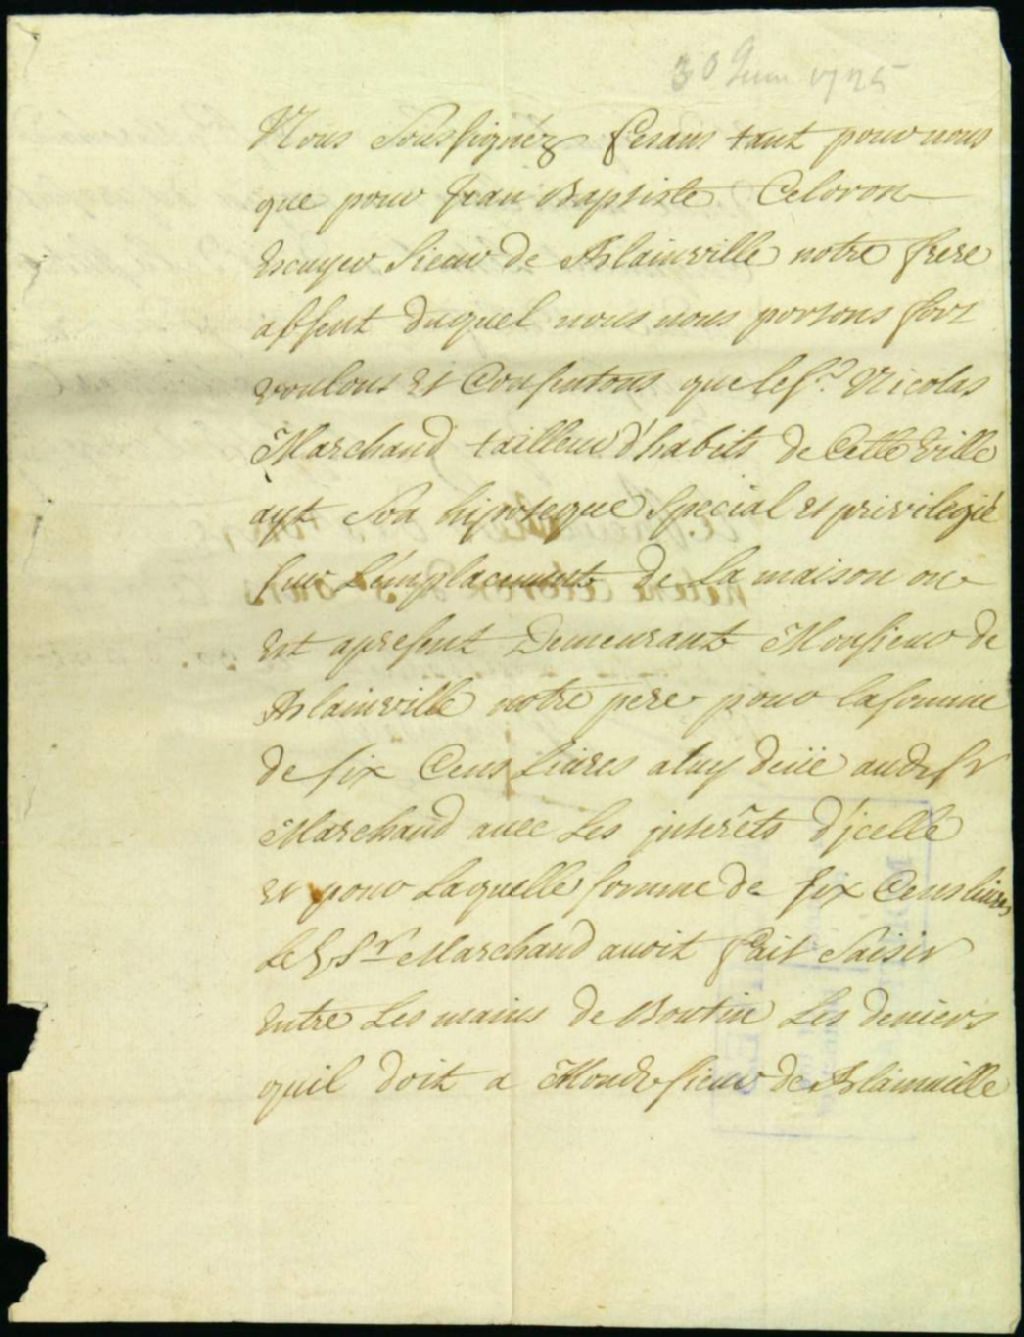 30 Juin 1725
Nous Soussignéz fesans tant pour nous
que pour Jean Baptiste Celoron
Escuyer Sieur de Blainville notre frere
absent duquel nous nous portons fort
voulons et Consentons que le Sr. Nicolas
Marchand tailleur d'habits de Cette ville
ayt Son hipoteque Special et privilegié
sur L'emplacement de La maison ou
Est apresent Demeurant Monsieur de
Blainville notre pere pour la somme
de six Cens Livres a luy deüe audt Sr
Marchand avec Les jnterêts d'jcelle
et pour Laquelle somme de six Cens livres
Led Sr Marchand avoit fait Saisir
Entre Les mains de Boutin Les deniers
quil doit a Mondt sieur de Blainville